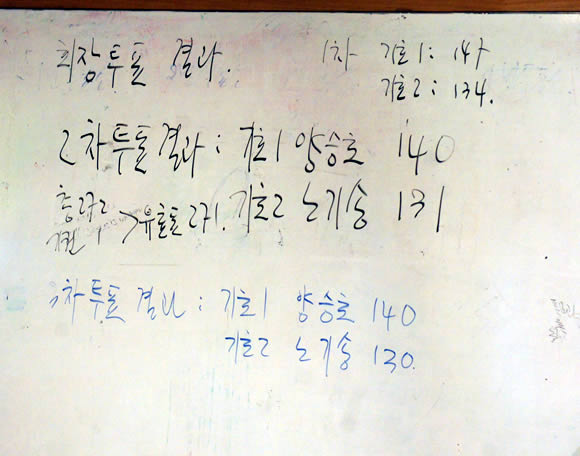 회장투표 결과. 1차 기호1: 147
기호2: 134.
2차투표결과 : 기호1 양승호 140
총272
기권 1 >유효표 271. 기호2 노기송 131
차투표 결과 : 기호1 양승호 140
기호2 노기송 130.